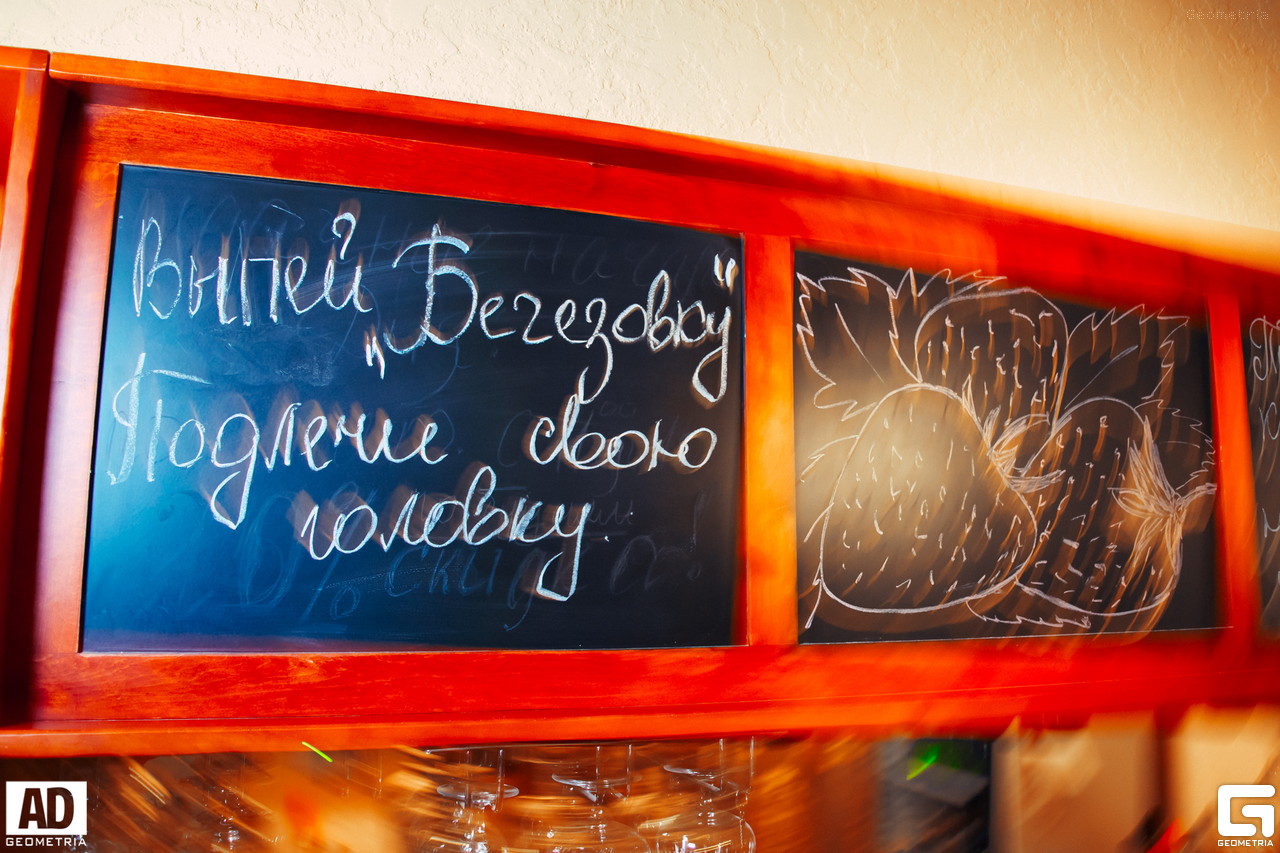 Geometria
Выпей
„Березовку"
Подлечи свою
головку.
AD
GEOMETRIA
G
GEOMETRIA